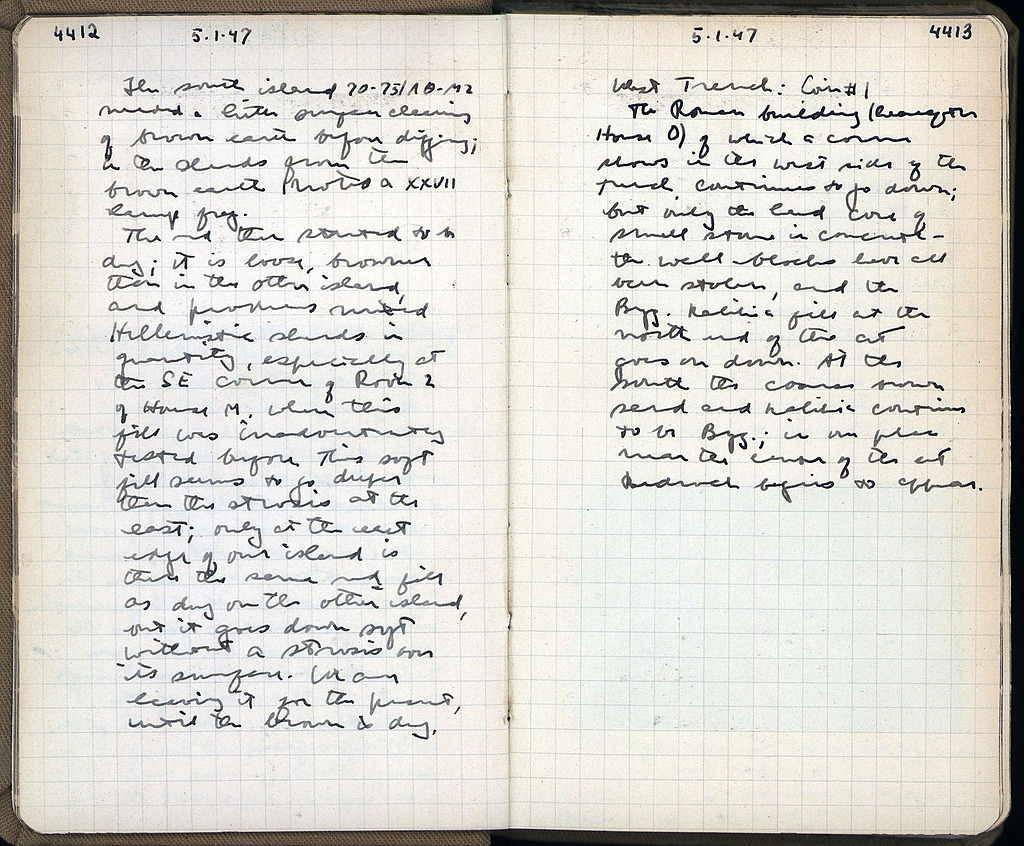 4412
5·1·47
The south island 70-75/ΛΘ-ΜΖ
needed a little surface cleaning
of brown earth before digging;
in the sherds from the
brown earth (noted a XXVII
lamp frag.
The red then started to be
dug; it is loose, browner
than in the other island,
and produces mixed
Hellenistic sherds in
quantity, especially at
the SE corner of Room 2
of House M, where this
fill was inadvertently
tested before. This soft
fill seems to go deeper
than the strosis at the
east; only at the east
edge of our island is
there the same red fill
as dug on the other island,
but it goes down soft
without a strosis over
its surface. We are
leaving it for the present,
until the brown is dug.
5·1·47
4413
West Trench: Coin #1
The Roman building (
House D) of which a corner
shows in the west side of the
trench continues to go down;
but only the hard core of
small stones in concrete –
the wall-blocks have all
been stolen, and the
Byz. fill at the
north end of the cut
goes on down. At the
south the coarse brown
sand and continues
to be Byz.; in one place
near the center of the cut
bedrock begins to appear.